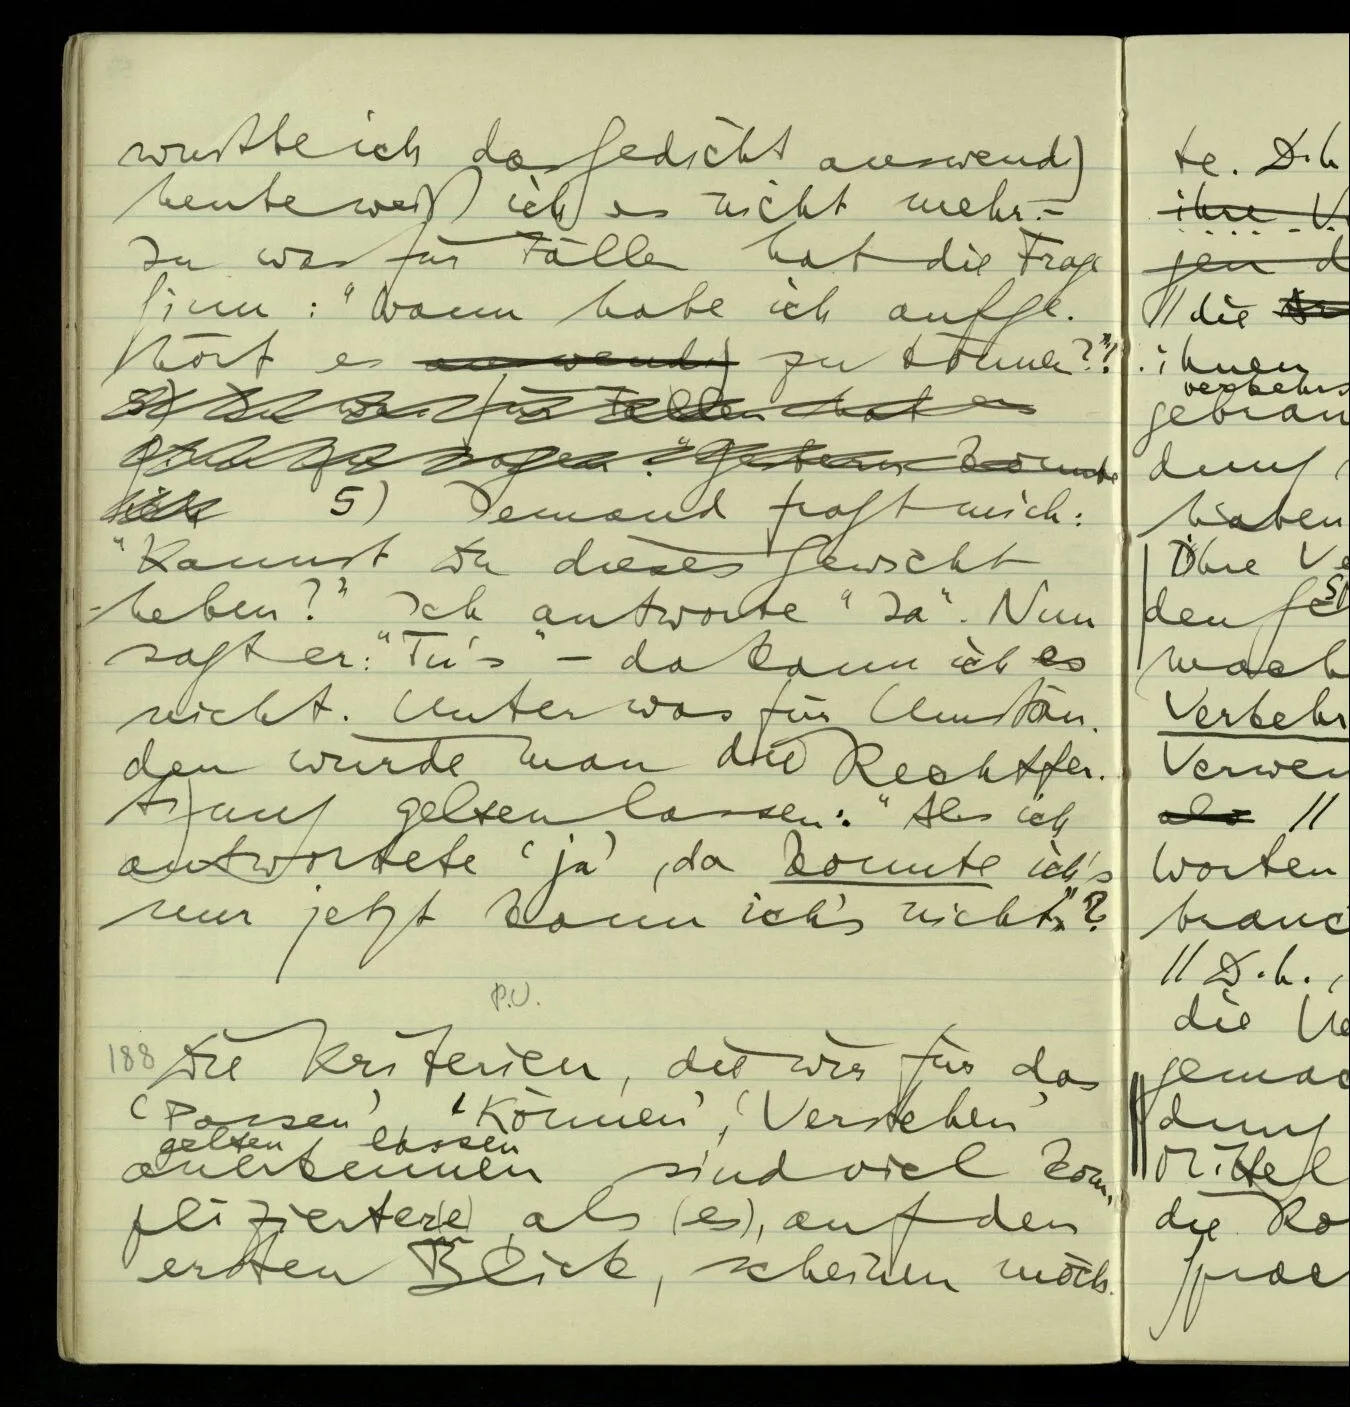 wußte ich das Gedicht auswendig
heute weiß ich es nicht mehr.–
In was für Fällen hat die Frage
Sinn : "wann habe ich aufge-
hört es auswendig zu können?"!
3) In was für Fällen hat es
Sinn zu sagen: "Gestern konnte
ich 5) Jemand fragt mich:
"Kannst Du dieses Gewicht
heben?" Ich antworte "Ja". Nun
sagt er: "Tu's" – da kann ich es
nicht. Unter was für Umstän-
den würde man die Rechtfer-
tigung gelten lassen: "Als ich
antwortete 'ja', da konnte ich's
nur jetzt kann ich's nicht."?
P.U.
188 Die Kriterien, die wir für das
'Passen', 'Können', 'Verstehen'
gelten lassen
anerkennen sind viel kom-
pliziertere, als (es), auf den
ersten Blick, scheinen möch-
te. D.h
ihre V
jen d
// die
ihnen
verkehrs
gebrau
dung
haben
Ihre Ve
den Ges
mach
Verkehr
Verwen
also //
worten
brauc
// D.h.,
die Ve
gemac
dung
Mittel
die Ko
sprac